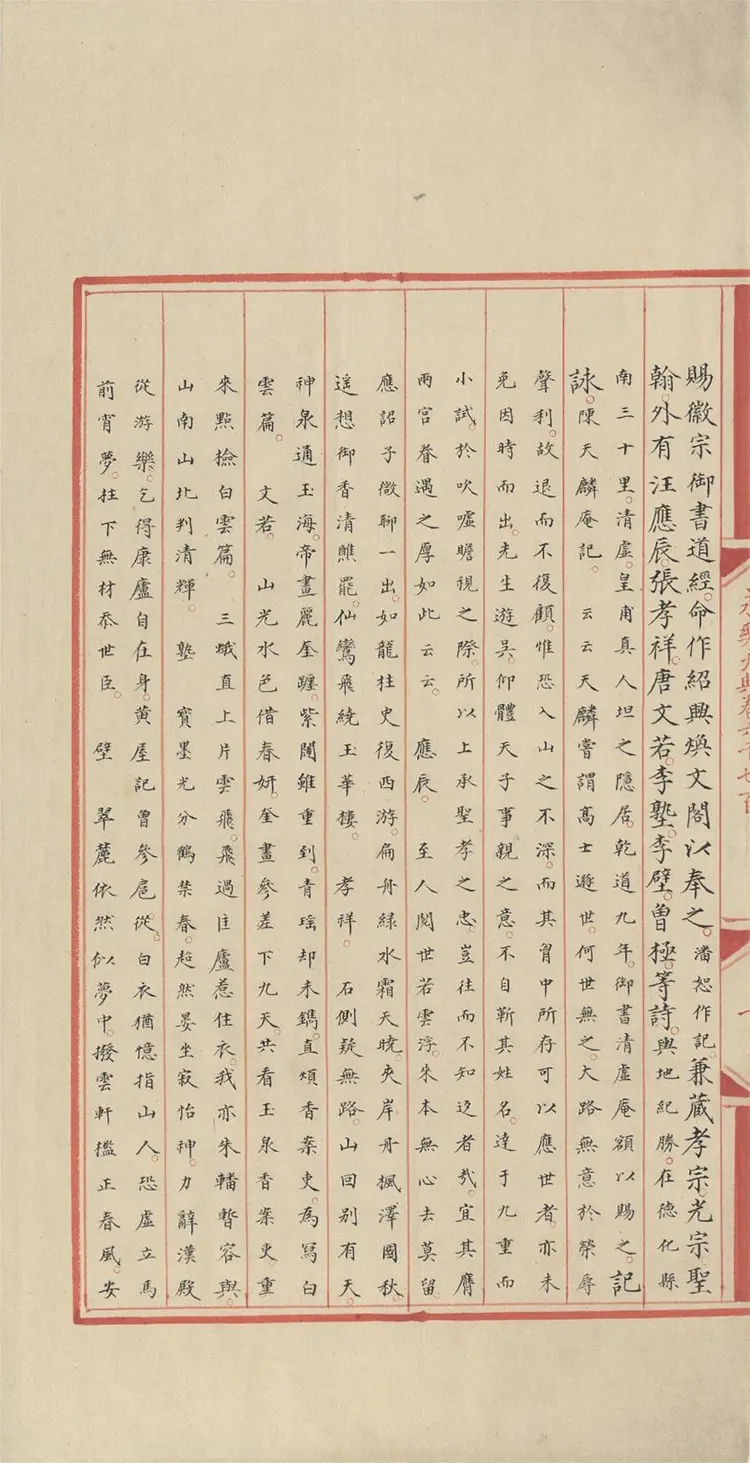 賜徽宗御書道經。命作紹興煥文閣以奉之。潘恕作記。兼蔵孝宗。光宗聖
翰。外有汪應辰。張孝祥。唐文若。李塾。李壁。曾極。等詩。輿地紀勝。在德化縣
南三十里。清虛。皇甫真人坦之隱居。乾道九年。御書清虛庵額以賜之。記
詠。陳天麟庵記。云云天麟嘗謂高士遯世。何世無之。大路無意於榮辱
聲利。故退而不復顧。惟恐入山之不深。而其胷中所存可以應世者。亦未
免因時而出。先生遊吳。仰體天子事親之意。不自靳其姓名。達于九重而
小試。於吹噓瞻視之際。所以上承聖孝之忠。豈往而不知返者哉。宜其膺
兩宫眷遇之厚如此云云。應辰。至人閱世若雲浮。來本無心去莫留。
應詔子微聊一出。如龍柱史復西游。扁舟綠水霜天曉。夾岸丹楓澤國秋。
遥想御香清醮罷。仙鸞飛繞玉華樓。孝祥。石側疑無路。山回别有天。
神泉通玉海。帝畫麗奎躔。紫闥雖重到。青瑶却未鐫。直煩香案吏。為寫白
雲篇。文若。山光水色借春妍。奎畫參差下九天。共看玉泉香案吏重
來點檢白雲篇。三蛾直上片雲飛。飛過匡廬惹住衣。我亦朱轓暫容與。
山南山北判清輝。塾寳墨光分鶴禁春。超然晏坐寂怡神。力辭漢殿
從游樂。乞得康廬自在身。黄屋記曽參扈從。白衣猶憶指山人。恐虛立馬
前宵夢。柱下無材忝世臣。壁翠麓依然似夢中。撥雲軒檻正春風。安
永樂大典卷六千七百